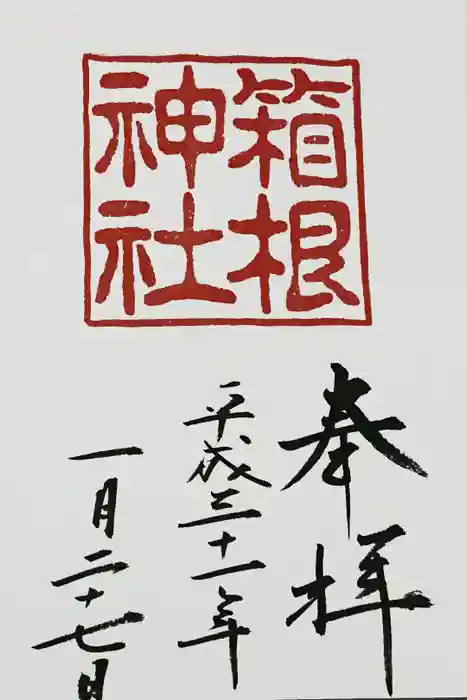 箱根
神社
奉拝
平成三十一年
一月二十七日